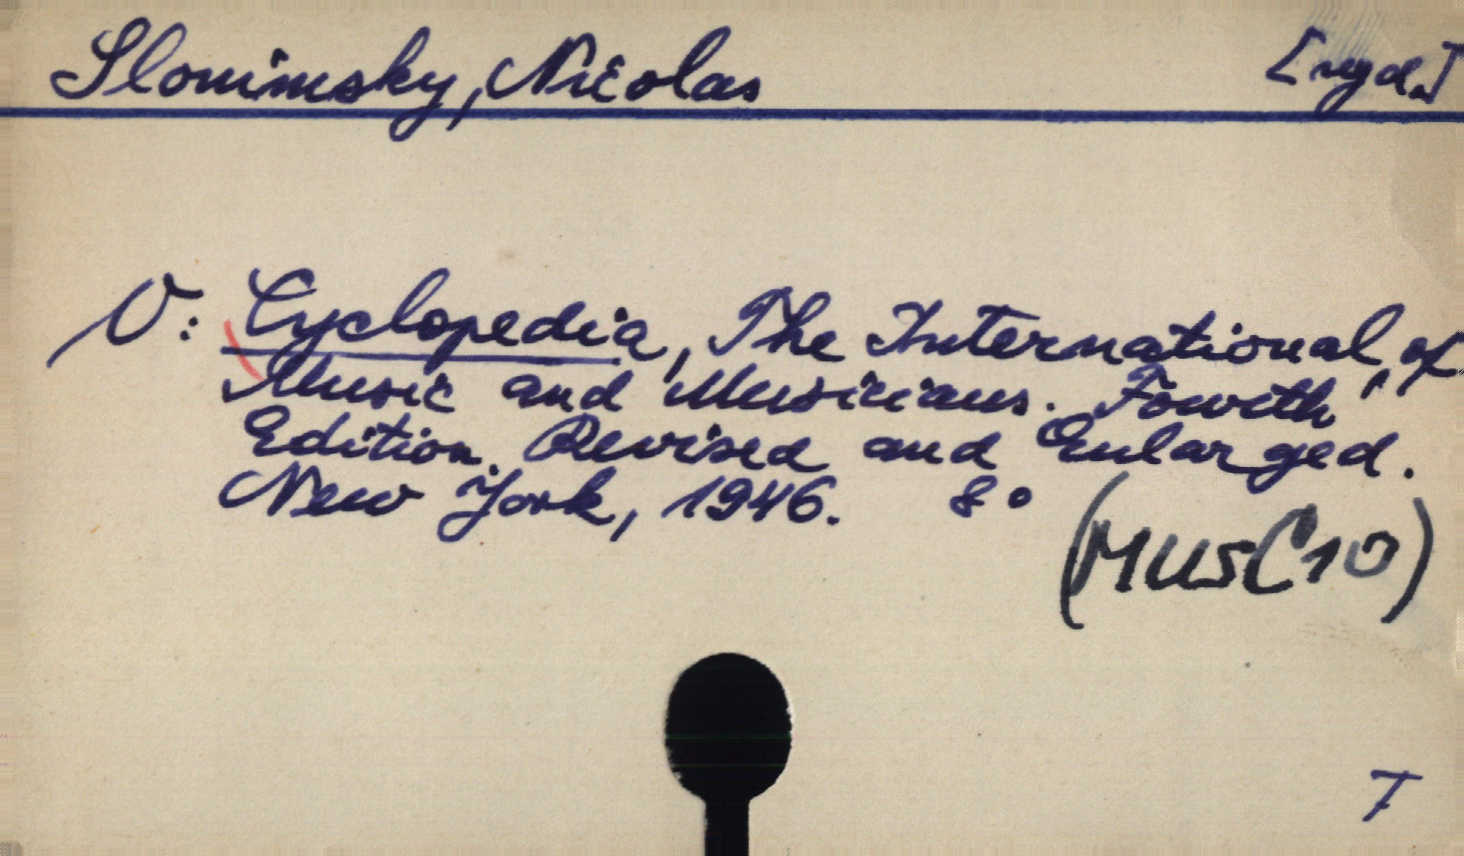 Slonimsky, Nicolas [wyd.]
V: Cyclopedia, The International, of
Music and Musicians. Fourth
Edition. Revised and Enlarged.
New York, 1946. 8°
(MUSC10)
T